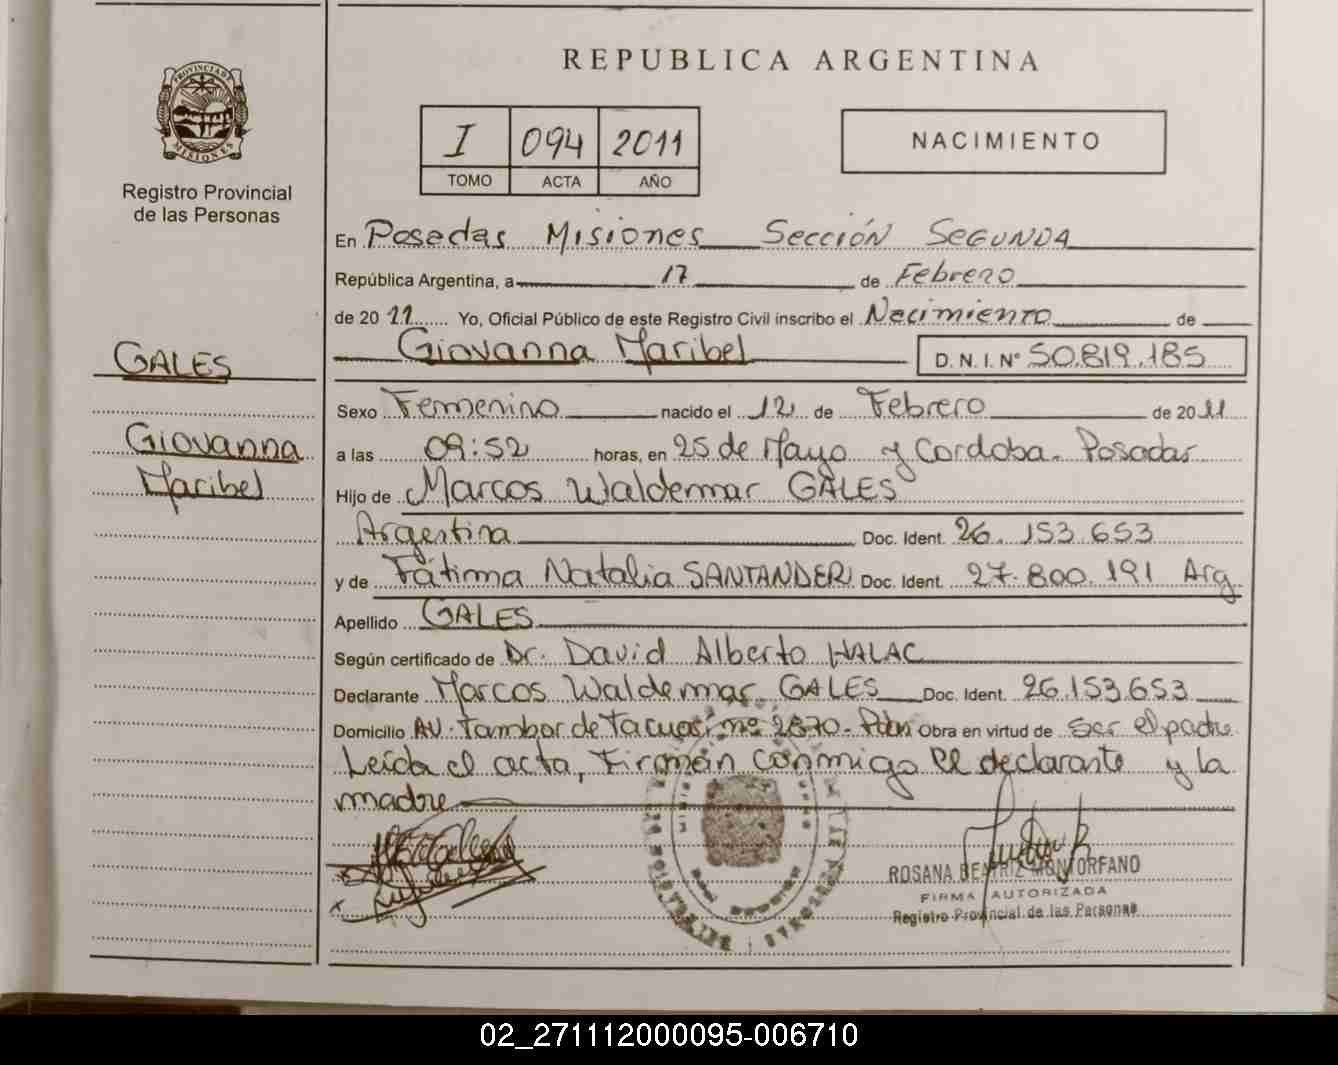 REPUBLICA ARGENTINA
PROVINCIA DE MISIONES
Registro Provincial
de las Personas
I 094 2011
TOMO ACTA AÑO
NACIMIENTO
En Posadas Misiones Sección SEGUNDA
República Argentina, a 17 de Febrero
de 20 11 Yo, Oficial Público de este Registro Civil inscribo el Nacimiento de
Giovanna Maribel D.N.I. Nº 50.819.185
GALES
Giovanna
Maribel
Sexo Femenino nacido el 12 de Febrero de 20 11
a las 09:52 horas, en 25 de Mayo y Cordoba. Posadas
Hijo de Marcos Waldemar GALES
Argentina Doc. Ident. 26.153.653
y de Fátima Natalia SANTANDER Doc. Ident. 27.800.191 Arg.
Apellido GALES
Según certificado de Dr. David Alberto HALAC
Declarante Marcos Waldemar GALES Doc. Ident. 26.153.653
Domicilio AV. Tambor de Tacuarí nº 2870. Obra en virtud de ser el padre
Leída el acta, Firman conmigo el declarante y la
madre
ROSANA BEATRIZ MONTORFANO
FIRMA AUTORIZADA
Registro Provincial de las Personas
02_271112000095-006710